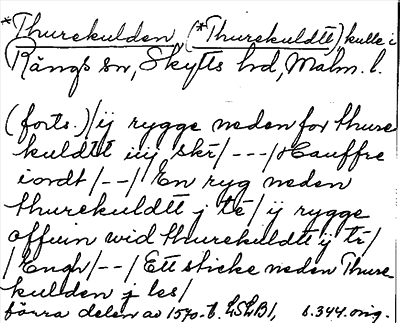 *Thurekulden, (*Thurekuldtt) kulle i
Rängs sn, Skytts hd, Malm. l.
(forts.) / ij rygge neden for thure
kuldtt iiij skr / --- / Hauffre
iordt / -- / En ryg neden
thurekuldtt j tr / ij rygge
offuin wid thurekuldtt ij tr /
/ Engh / -- / Ett sticke neden Thure
kulden j les /
förra delen av 1570-t. LSLB1, s. 344. orig.